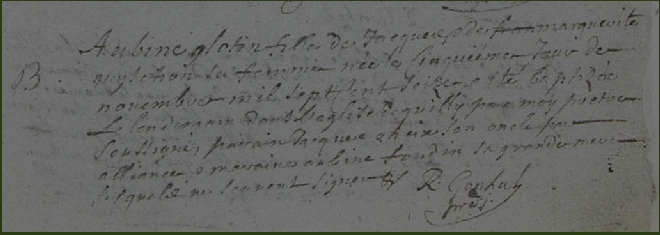 Aubine glotin fille de Jacques & de fran marguerite
B. guschon sa femme née le cinquiéme Jour de
novembre mil sept cent seize a été baptizée
Le lendemain dans l'eglise de quilly par moy pretre
soussigné, parain Jacques son oncle par
alliance & maraine aubine sa grande mere
lesquels ne scavent signer R.